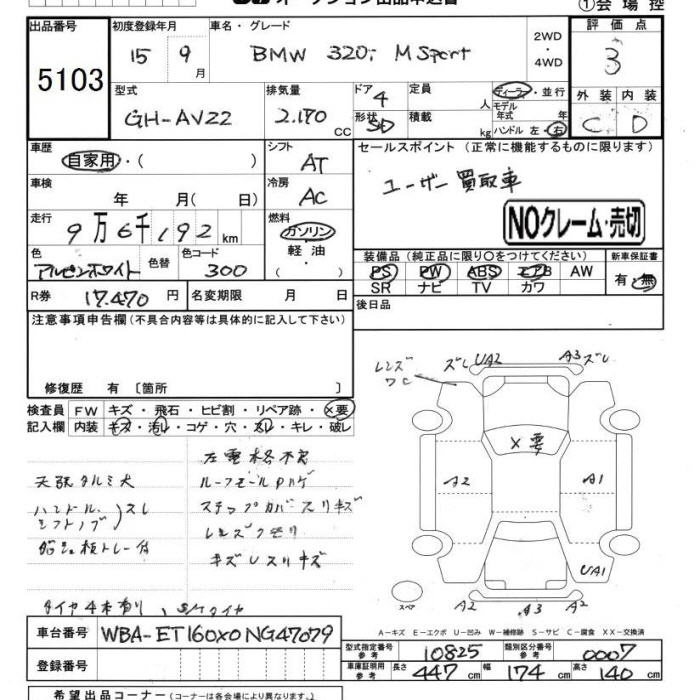 オークション出品申込書
①会場控
出品番号 初度登録年月 車名・グレード 評価点
5103 15 9月 BMW 320i M Sport 2WD・4WD 3
型式 排気量 ドア 定員 ディーラー・並行 外装 内装
GH-AV22 2.170 cc 4 人 モデル年式 年 C D
形状 SD 積載 kg ハンドル 左・右
車歴 シフト セールスポイント (正常に機能するものに限ります)
自家用・( ) AT
車検 冷房 ユーザー買取車
年 月(日) AC
NOクレーム・売切
走行 燃料
9万6千192km ガソリン
軽油
( )
色 色替 色コード 装備品 (純正品に限り○をつけてください) 新車保証書
アルピンホワイト 300 PS PW ABS エアB AW 有・無
SR ナビ TV カワ
R券 17.470円 名変期限 月 日 後日品
注意事項申告欄(不具合内容等は具体的に記入して下さい)
修復歴 有〔箇所 〕
検査員 FW キズ・飛石・ヒビ割・リペア跡・×要
記入欄 内装 キズ・汚レ・コゲ・穴・スレ・キレ・破レ
左電格不良
天張タルミ大 ルーフモールPハゲ
ハンドル シフトノブ スレ ステップカバースリキズ
レンズクモリ
板トレー付 キズUスリキズ
タイヤ4本
レンズ ズレ UA2 A3 ズレ
ワC
×要
A2 A1
UA1
スペア A2 A3 A2
A-キズ E-エクボ U-凹み W-補修跡 S-サビ C-腐食 XX-交換済
車台番号 WBA-ET160X0NG47079
型式指定番号参考 10825 類別区分番号参考 0007
登録番号
車庫証明用参考 長さ 447cm 幅 174cm 高さ 140cm
希望出品コーナー(コーナーは各会場により異なります。)